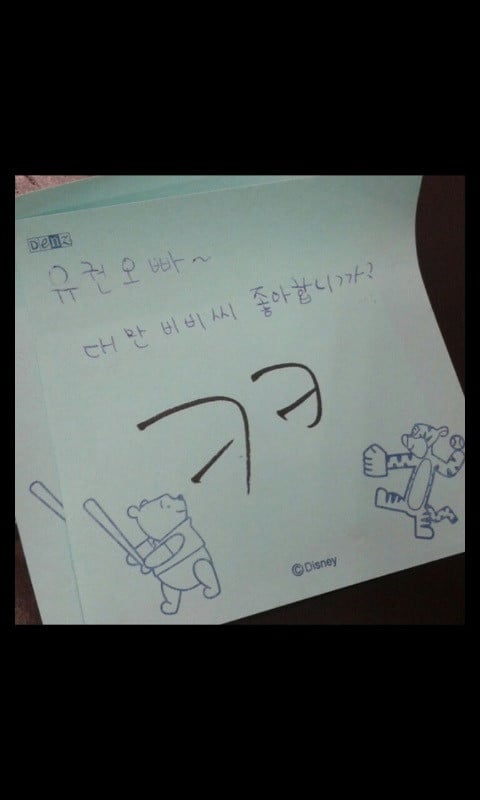 Denz
유권오빠~
대만 비비씨 좋아합니까?
ㅋㅋ
©Disney